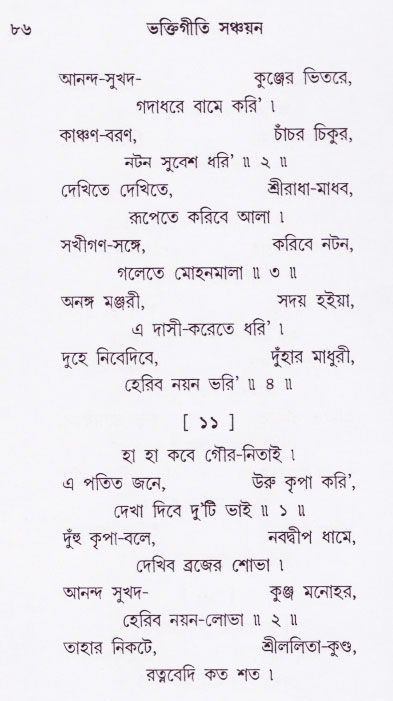 ৮৬ ভক্তিগীতি সঞ্চয়ন
আনন্দ-সুখদ- কুঞ্জের ভিতরে,
গদাধরে বামে করি' ।
কাঞ্চণ-বরণ, চাঁচর চিকুর,
নটন সুবেশ ধরি' ॥ ২ ॥
দেখিতে দেখিতে, শ্রীরাধা-মাধব,
রূপেতে করিবে আলা ।
সখীগণ-সঙ্গে, করিবে নটন,
গলেতে মোহনমালা ॥ ৩ ॥
অনঙ্গ মঞ্জরী, সদয় হইয়া,
এ দাসী-করেতে ধরি' ।
দুহে নিবেদিবে, দুঁহার মাধুরী,
হেরিব নয়ন ভরি' ॥ ৪ ॥
[ ১১ ]
হা হা কবে গৌর-নিতাই ।
এ পতিত জনে, উরু কৃপা করি',
দেখা দিবে দু'টি ভাই ॥ ১ ॥
দুঁহু কৃপা-বলে, নবদ্বীপ ধামে,
দেখিব ব্রজের শোভা ।
আনন্দ সুখদ- কুঞ্জ মনোহর,
হেরিব নয়ন-লোভা ॥ ২ ॥
তাহার নিকটে, শ্রীললিতা-কুণ্ড,
রত্নবেদি কত শত ।